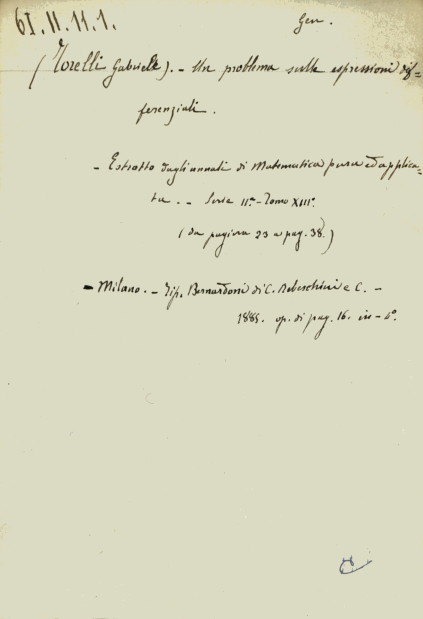 61.II.11.1.
Gen.
(Torelli Gabriele). - Un problema sulle espressioni dif=
ferenziali.
- Estratto dagli annali di Matematica pura ed applica=
ta. - Serie IIª - Tomo XIIIº.
(da pagina 23 a pag. 38.)
- Milano. - Tip. Bernardoni di C. Rebeschini e C. -
1885. op. di pag. 16. in - 4º.